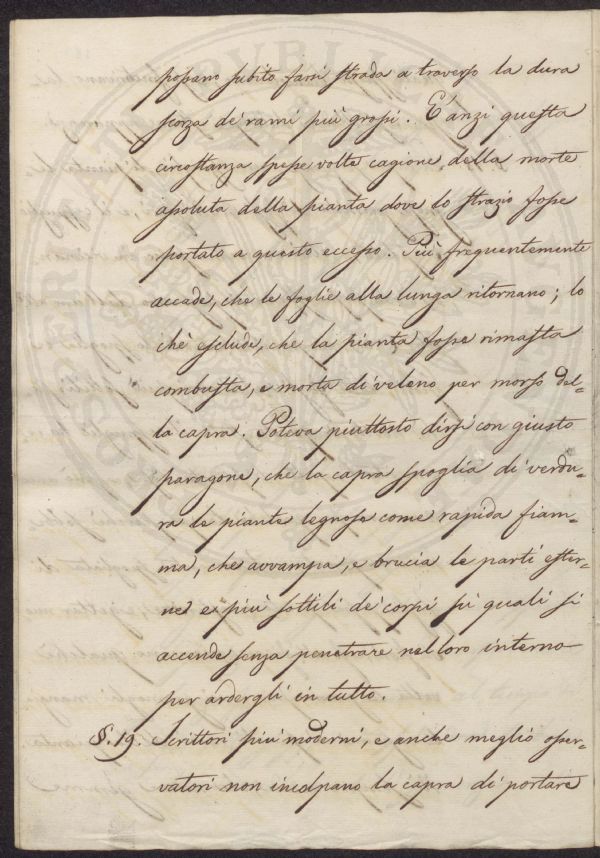 possano subito farsi strada a traverso la dura
scorza de' rami più grossi. E' anzi questa
circostanza spesse volte cagione della morte
assoluta della pianta dove lo strazio fosse
portato a questo eccesso. Più frequentemente
accade, che le foglie alla lunga ritornano; lo
chè esclude, che la pianta fosse rimasta
combusta, e morta di veleno per morso del-
la capra. Poteva piuttosto dirsi con giusto
paragone, che la capra spoglia di verdu-
ra le piante legnose come rapida fiam-
ma, che avvampa, e brucia le parti ester-
ne e più sottili de' corpi sù quali si
accende senza penetrare nel loro interno
per ardergli in tutto.
§. 19. Scrittori più moderni, e anche meglio osser-
vatori non incolpano la capra di portare